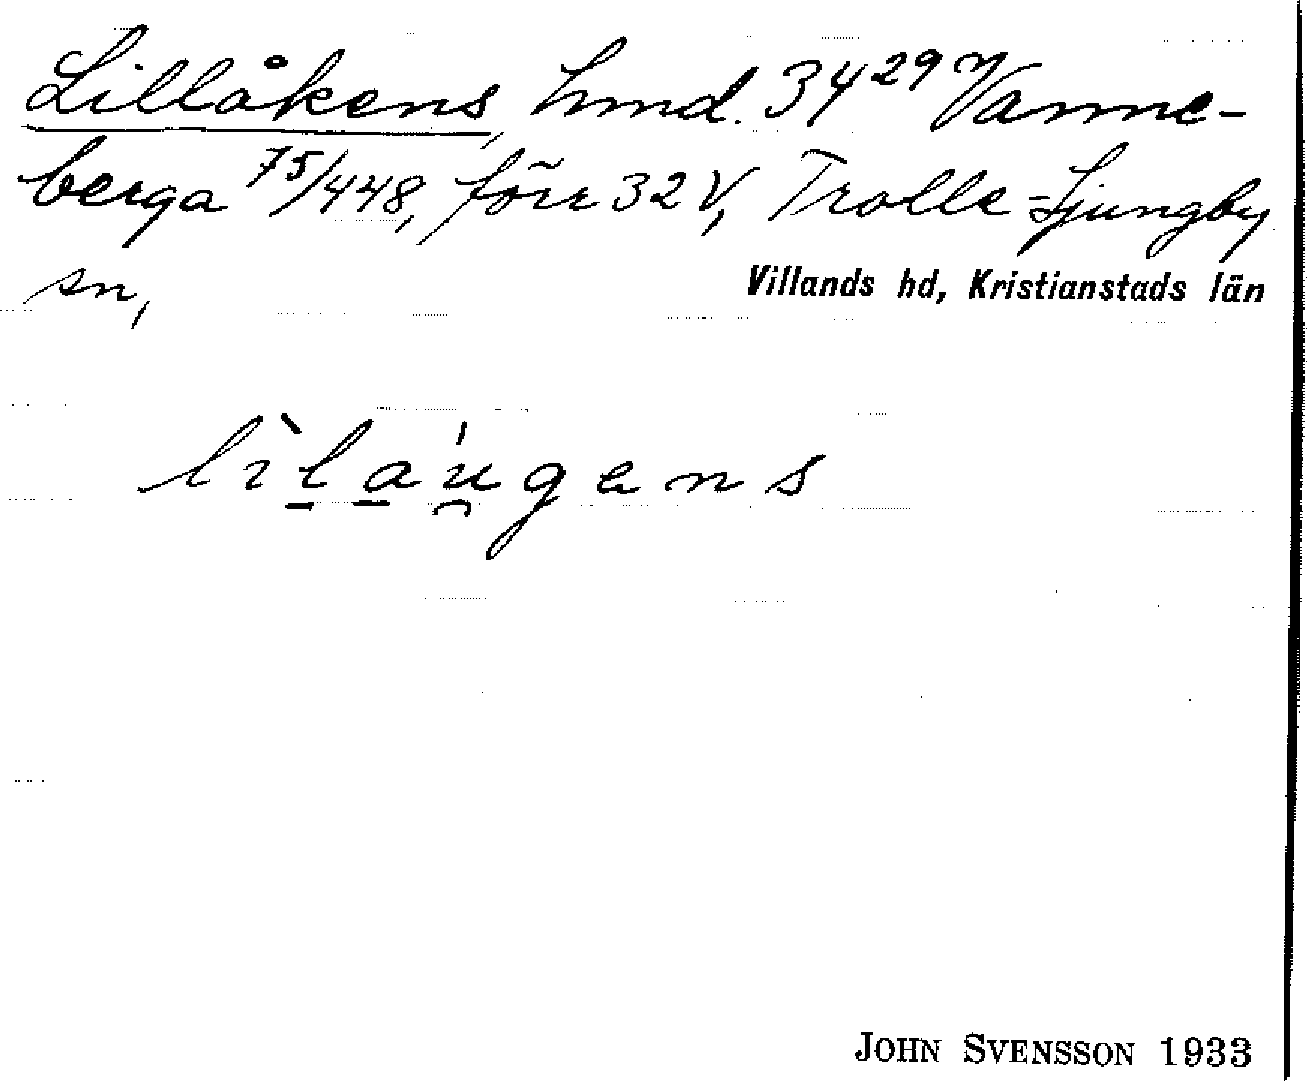 Lillåkens, hmd. 34²⁹ Vanne-
berga 75/448, förr 32 V, Trolle-Ljungby
sn,
Villands hd, Kristianstads län
lìlaú̯gens
JOHN SVENSSON 1933